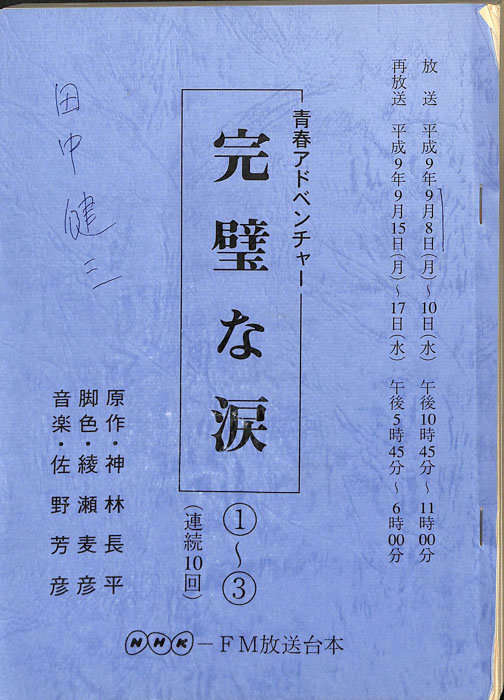 放送 平成9年9月8日(月)〜10日(水) 午後10時45分〜11時00分
再放送 平成9年9月15日(月)〜17日(水) 午後5時45分〜6時00分
青春アドベンチャー
完璧な涙
①〜③
(連続10回)
原作・神林長平
脚色・綾瀬麦彦
音楽・佐野芳彦
田中健三
NHK－FM放送台本